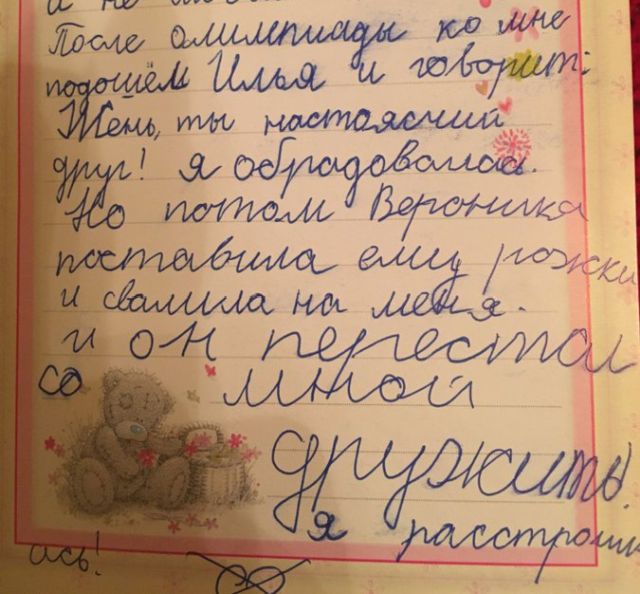 и не
После олимпиады ко мне
подошём Илья и говорит:
Жень, ты настоясчий
друг! я обрадовалась.
Но потом Вероника
поставила ему рожки
и свалила на меня.
и он перестал
со мной
дружить!
я расстрои
ась!